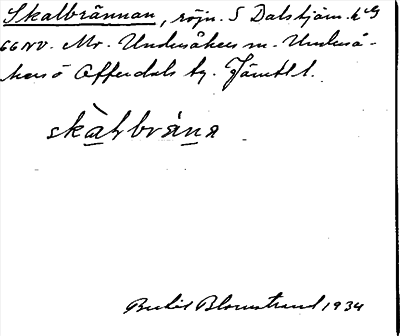 Skalbrännan, röjn. S Dalstjärn. k bG
66 NV. Mr. Undersåkers sn. Underså-
kers o Offerdals tg. Jämtl l.
skàlbrána
Bertil Blomstrand 1934